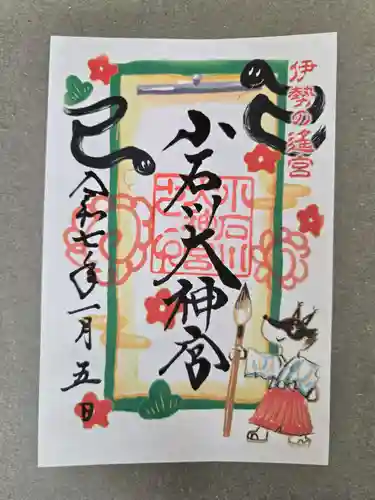 伊勢の遙宮
己
小石川大神宮
己
令和七年一月五日